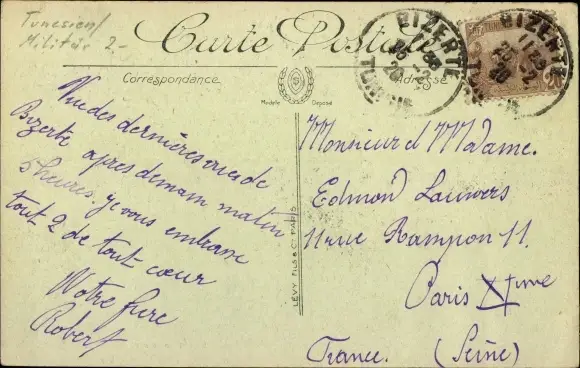 Tunesien/
Militär 2-
Carte Postale
Correspondance
Adresse
Modèle Déposé
BIZERTE
TUNISIE
BIZERTE
TUNISIE
20
Vue des dernières vues de
Bizerte apres demain matin
5 heures. je vous embrasse
tout 2 de tout cœur
Votre frere
Robert
LÉVY FILS & Cie PARIS
Monsieur et Madame.
Edmond Lauwers
11 rue Rampon 11.
Paris XIeme
France. (Seine)